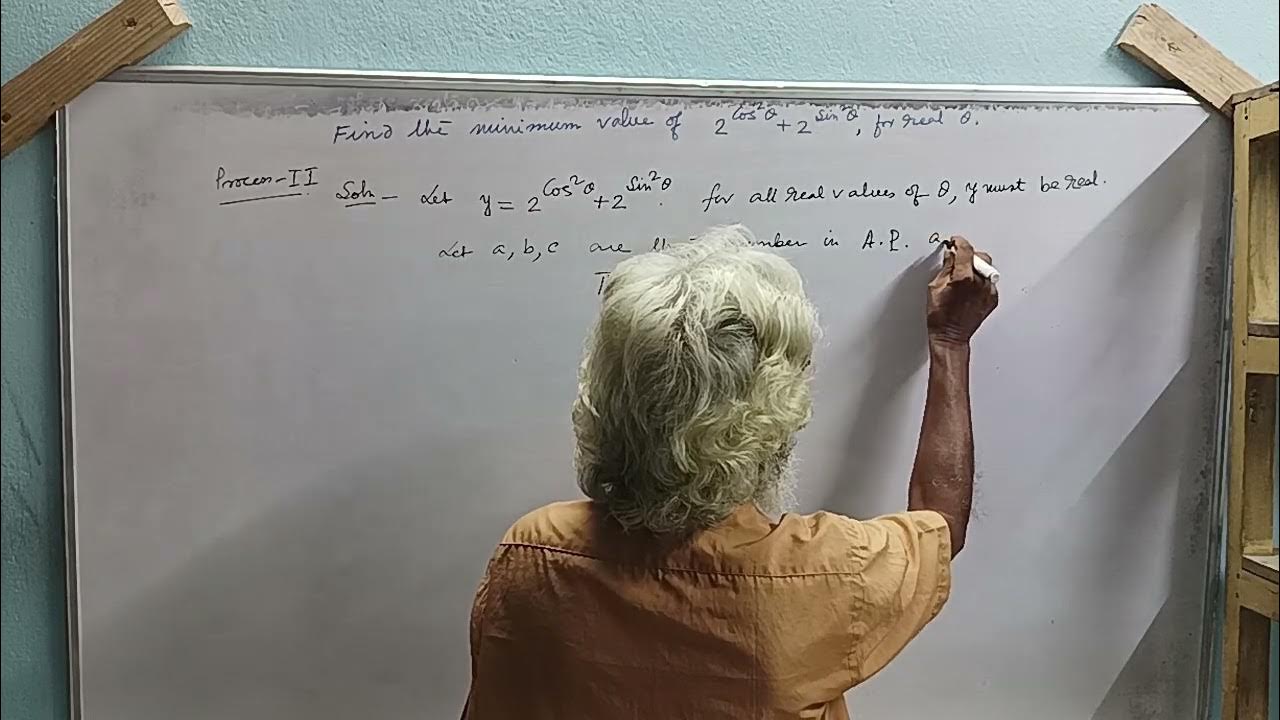 Find the minimum value of 2^cos²θ + 2^sin²θ, for real θ.
Process-II Soln - Let y = 2^Cos²θ + 2^Sin²θ. for all real values of θ, y must be real.
Let a, b, c are in A.P.